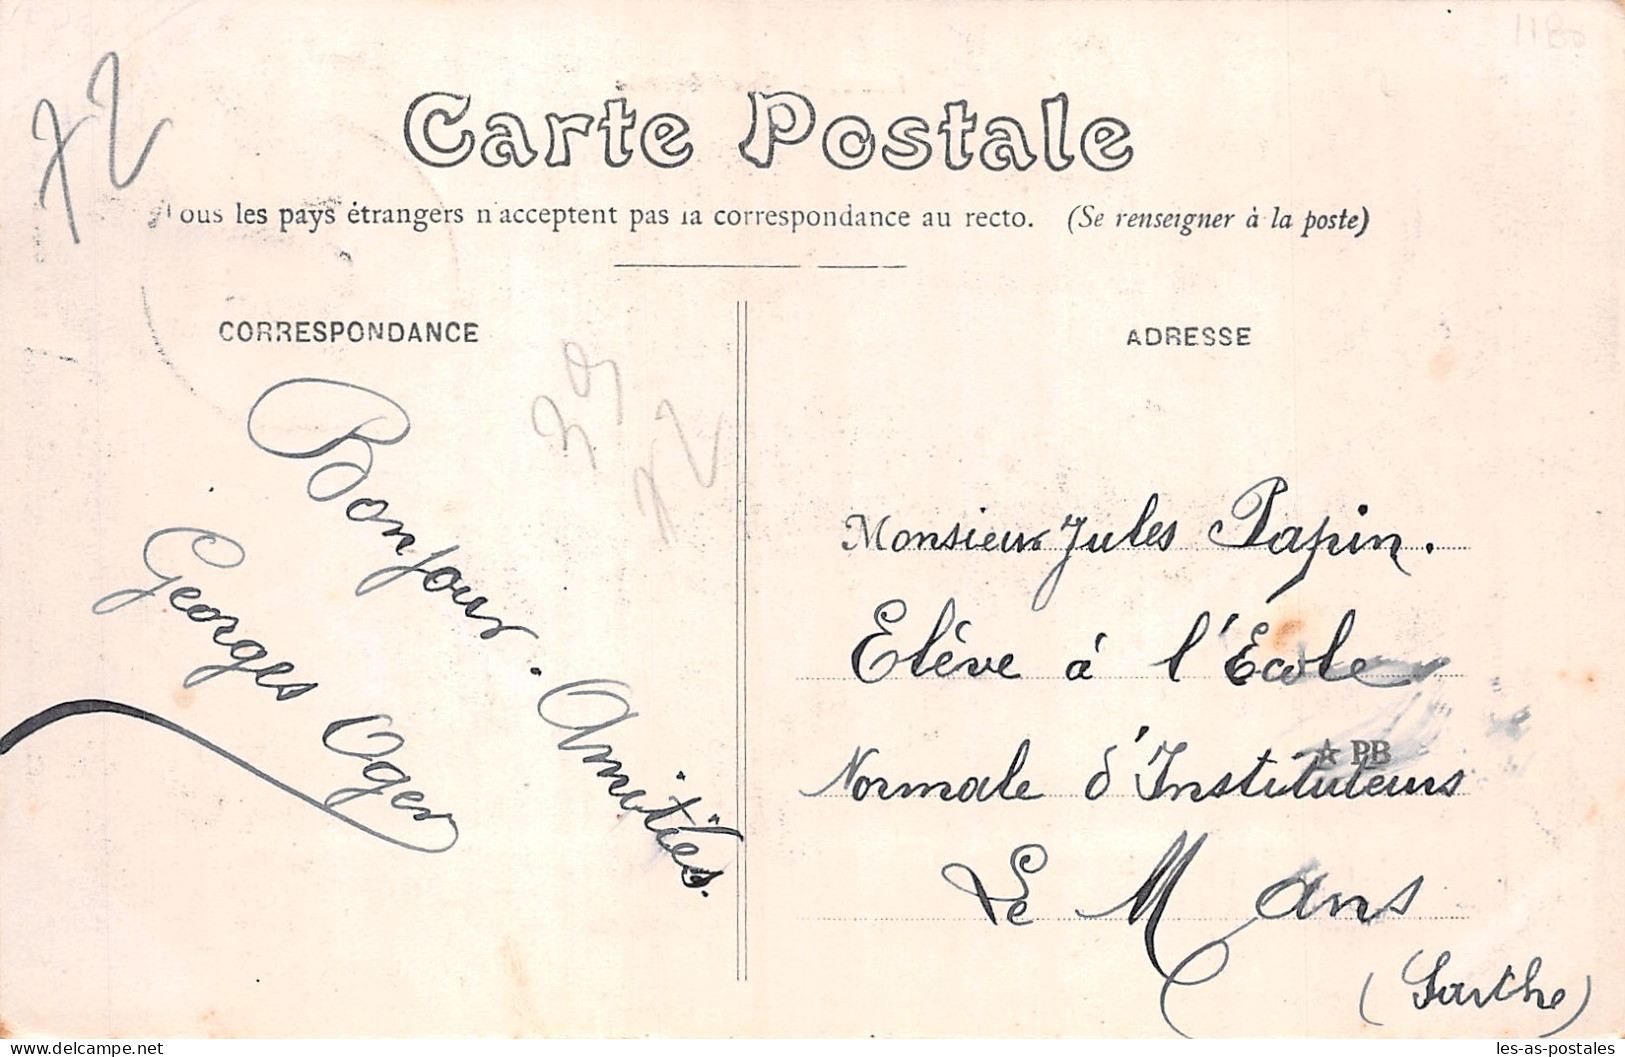 1180
72
Carte Postale
Tous les pays étrangers n'acceptent pas la correspondance au recto. (Se renseigner à la poste)
CORRESPONDANCE
Bonjour. Amitiés.
Georges Oger
72
ADRESSE
Monsieur Jules Papin.
Elève à l'École
Normale d'Instituteurs
★ PB
Le Mans
(Sarthe)
delcampe.net
les-as-postales